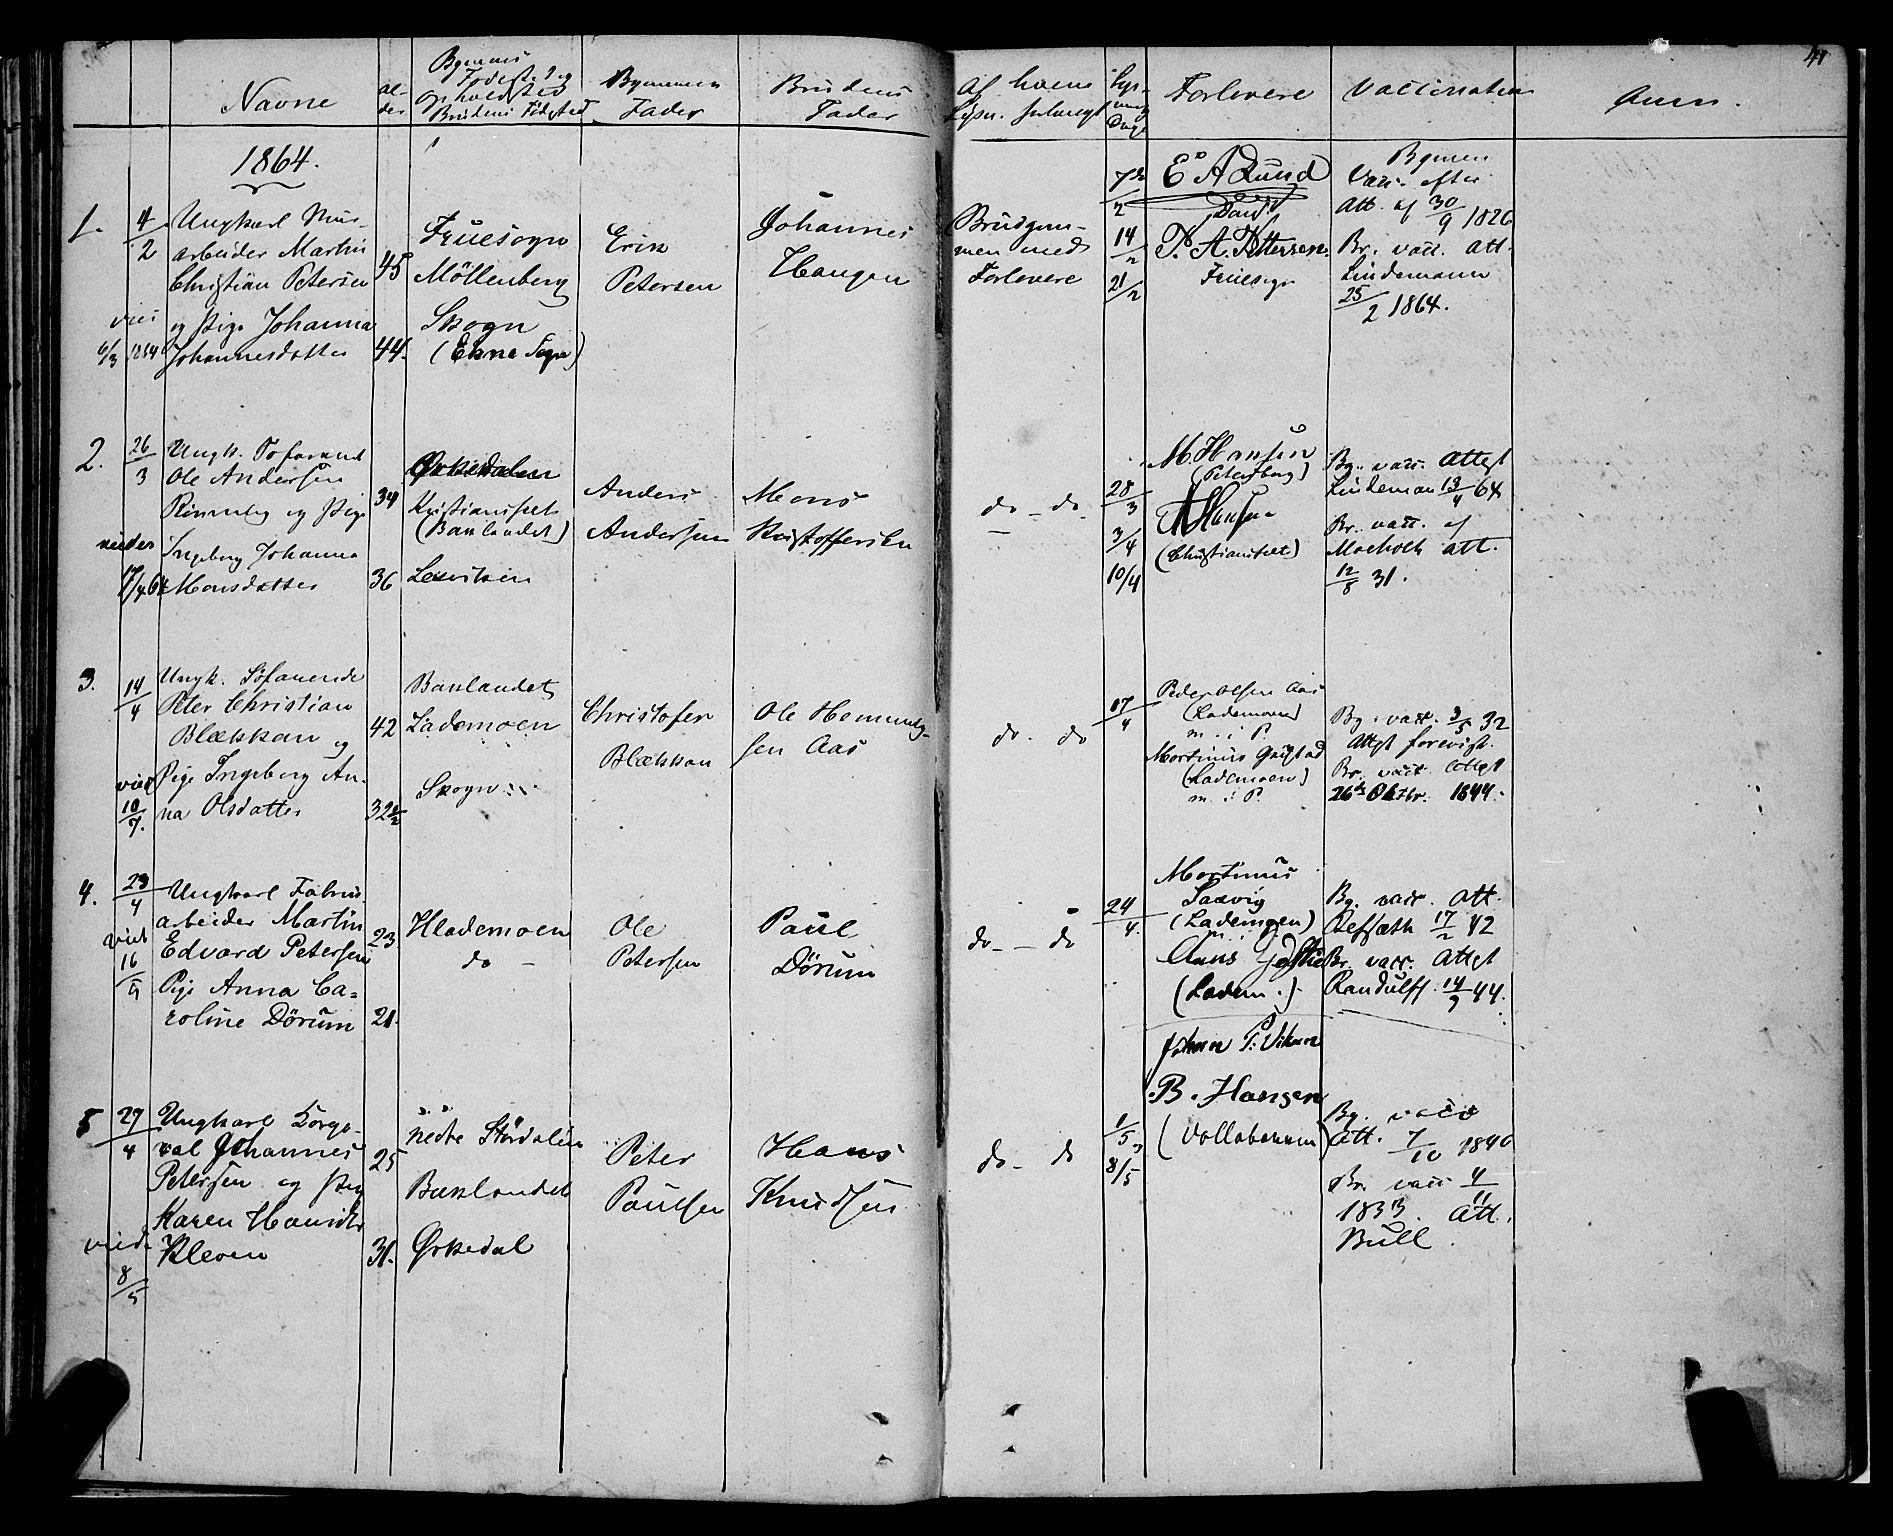 41
Navne
Al-
der
Bgmens
Fødested og
Opholdssted
Brudens Fødested
Bgmmens
Fader
Brudens
Fader
Af hvem
Lysn. forlangt
Lys-
nings
Dage
Forlovere
Vaccination
Anm.
1864.
1.
4/2
Ungkarl Mur-
arbeider Martin
Christian Petersen
og Pige Johanna
Johannesdatter
viet
6/3 1864
45
44.
Fruesogn
Möllenberg
Skogn
(Ekne Sogn)
Erik
Petersen
Johannes
Haugen
Brudgom-
men med
Forlovere
7de/2
14/2
21/2
E A Lund
P. A. Pettersen.
Fruesogn
Bgmen
Vacc. efter
Att. af 30/9 1826
Br. vacc. Att.
Lindemann
25/2 1864.
2.
26/3
Ungk.
Ole Andersen
og Pige
Ingeborg Johanna
Monsdatter
viedes
17/4 64
34
36
Ørkedalen
Kristianssten
(Baklandet)
Lexviken
Anders
Andersen
Mons
Kristoffersen
do - do
28/3
3/4
10/4
M. Hansen
(Petersborg)
A Hansen
(Christiansten)
Bg. vacc. Attest
Lindeman 13/4 64
Br. vacc. af
Moeholt att.
12/8 31.
3.
14/4
Ungk. Söfarende
Peter Christian
Blækkan og
Pige Ingeborg An-
na Olsdatter
viet
10/7.
42
32½
Baklandet
Lademoen
Skogn
Christofer
Blækkan
Ole Hemming-
sen Aas
do. do
17/4
Peder Olsen Aas
(Lademoen)
m. i. P.
Mortinus
(Lademoen)
m. i. P.
Bg. vacc. 3/5 32
Attest forevist.
Br. vacc. Attest
26de Oktbr. 1844.
4.
23/4
Ungkarl Fabrik
arbeider Martin
Edvard Petersen
Pige Anna Ca=
roline Dörum
viet
16/5
23
21.
Hlademoen
do -
Ole
Petersen
Paul
Dörum
do - do
24/4.
Mortinus
Saxvig
(Lademoen)
(Ladem.)
Bg. vacc. Att.
17/2 42
Br. vacc. Attest
Randulff 14/9 44.
5
29/4
Ungkarl Korpo-
ral Johannes
Petersen og Pige
Karen Hansdtr
Kleven
viede
8/5
25
31.
Nedre Stördalen
Baklandet
Ørkedal
Peter
Paulsen
Hans
Knudsen
do - do
1/5
8/5
Johan P. Vikan
B. Hansen
(Vollabakken)
Bg. vacc
Att. 7/10 1840
Br. vacc 4/11
1833. Att.
Bull.